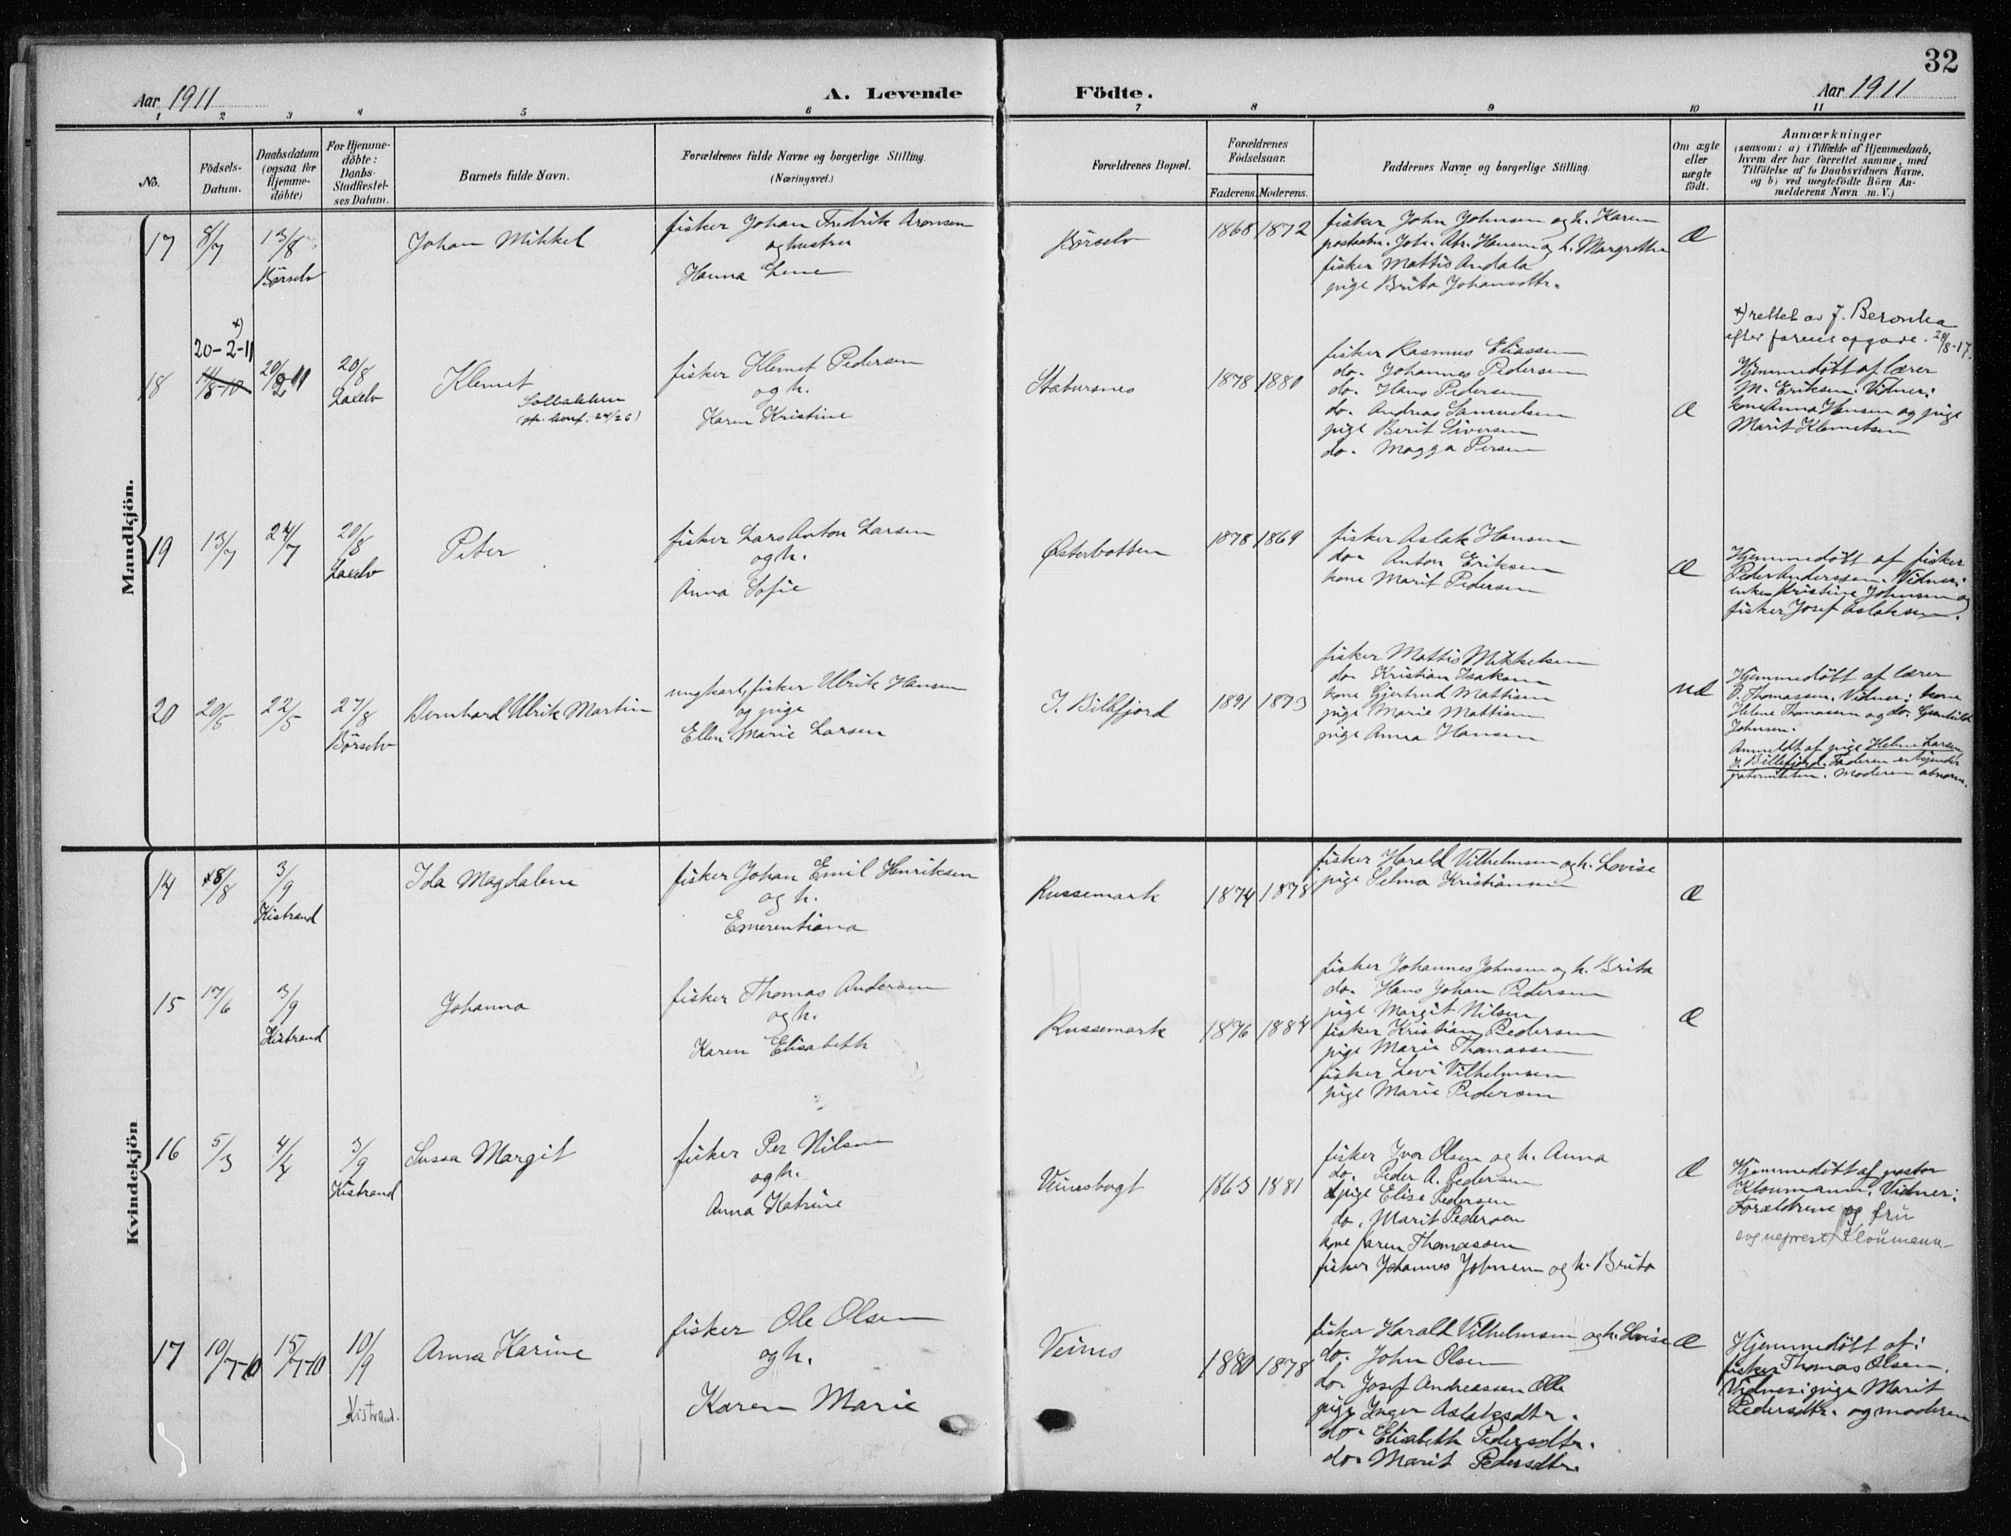 32
Aar 1911
A. Levende
Födte.
Aar 1911
1 2 3 4 5 6 7 8 9 10 11
No.
Födsels-
Datum.
Daabsdatum
(ogsaa for
Hjemme-
döbte)
For Hjemme-
döbte:
Daabs-
Stadfæstel-
ses Datum.
Barnets fulde Navn.
Forældrenes fulde Navne og borgerlige Stilling.
(Næringsvei.)
Forældrenes Bopæl.
Forældrenes
Födselsaar.
Faderens. Moderens.
Faddernes Navne og borgerlige Stilling.
Om ægte
eller
uægte
födt.
Anmærkninger
(saasom: a) i Tilfælde af Hjemmedaab,
hvem der har forrettet samme, med
Tilföielse af to Daabsvidners Navne.
og b) ved uægtefödte Börn An-
melderens Navn m. V.)
Mandkjön.
17
8/7
13/8
Børselv
Johan Mikkel
fisker Johan Fredrik Aronsen
og hustru
Hanna Lene
Børselv
1868 1872
fisker John Johnsen og h. Karen
Joh. Abr. Hansen og h. Margrethe
fisker Mattis Andala
pige Brita Johansdtr.
Æ
18
x)
20-2-11
20/2 11
20/8
Laxelv
Klemet
Solbakken
(24/26)
fisker Klemet Pedersen
og h.
Karen Kristine
Stabursnes
1878 1880
fisker Rasmus Eliassen
do. Johannes Pedersen
do. Hans Pedersen
do. Andreas Samuelsen
pige Berit Siversen
do. Magga Persen
Æ
x) rettet av J. Beronka
efter opgave. 28/8-17.
Hjemmedøbt af lærer
M. Eriksen. Vidner:
kone Anna Hansen og pige
Marit Klemetsen
19
13/7
24/7
20/8
Laxelv
Peter
fisker Lars Anton Larsen
og h.
Anna Sofie
Østerbotten
1878 1869
fisker Aslak Hansen
do. Anton Eriksen
kone Marit Pedersen
Æ
Hjemmedøbt af fisker
Peder Anderssen. Vidner:
enke Kristine Johnsen og
fisker Josef Aslaksen.
20
20/5
22/5
27/8
Børselv
Bernhard Ulrik Martin
ungkarl, fisker Ulrik Hansen
og pige
Ellen Marie Larsen
I. Billefjord
1891 1873
fisker Mattis Mikkelsen
do. Kristian Isaksen
kone Gjertrud Mattisen
pige Marie Mattisen
pige Anna Hansen
Uæ
Hjemmedøbt af lærer
P. Thomassen. Vidner: kone
Helene Thomassen og do. Gunhild
Johnsen.
Anmeldt af pige Helene Larsen,
I. Billefjord. Faderen erkjender
paterniteten. Moderen
Kvindekjön
14
8/8
3/9
Kistrand
Ida Magdalene
fisker Johan Emil Henriksen
og h.
Esmerentiana
Russemark
1874 1878
fisker Harald Vilhelmsen og h. Lovise
pige Selma Kristiansen
Æ
15
17/6
3/9
Kistrand
Johanna
fisker Thomas Andersen
og h.
Karen Elisabeth
Russemark
1876 1884
fisker Johannes Johnsen og h. Brita
do. Hans Johan Pedersen
pige Margit Nilsen
fisker Kristian Pedersen
pige Marie Thomassen
fisker Levi Vilhelmsen
pige Marie Pedersen
Æ
16
5/3
4/4
3/9
Kistrand
Sussa Margit
fisker Per Nilsen
og h.
Anna Katrine
Veinesbogt
1863 1881
fisker Iver Olsen og h. Anna
do. Peder A. Pedersen
pige Elise Pedersen
do. Marit Pedersen
kone Karen Thomassen
fisker Johannes Johnsen og h. Brita
Æ
Hjemmedøbt af pastor
Kloumann. Vidner:
Forældrene og fru
sogneprest Kloumann
17
10/7-10
15/7-10
10/9
Kistrand.
Anna Karine
fisker Ole Olsen
og h.
Karen Marie
Veines
1880 1878
fisker Harald Vilhelmsen og h. Lovise
do. John Olsen
do. Josef Andreassen Olle
pige Inger Aslaksdtr.
do. Elisabeth Pedersdtr.
do. Marit Pedersdtr.
Æ
Hjemmedøbt af:
fisker Thomas Olsen.
Vidner: pige Marit
Pedersdtr. og moderen